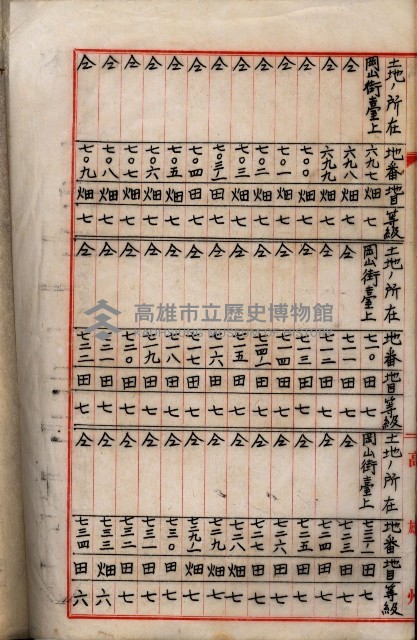 高雄州
土地ノ所在 地番 地目 等級
岡山街臺上 六九七 畑 七
仝 六九八 畑 七
仝 六九九 畑 七
仝 七〇〇 畑 七
仝 七〇一 畑 七
仝 七〇二 畑 七
仝 七〇三 畑 七
仝 七〇三ノ一 田 七
仝 七〇四 田 七
仝 七〇五 畑 七
仝 七〇六 畑 七
仝 七〇七 畑 七
仝 七〇八 畑 七
仝 七〇九 畑 七
土地ノ所在 地番 地目 等級
岡山街臺上 七一〇 田 七
仝 七一一 田 七
仝 七一二 田 七
仝 七一三 田 七
仝 七一四 田 七
仝 七一四ノ一 田 七
仝 七一五 田 七
仝 七一六 田 七
仝 七一七 田 七
仝 七一八 田 七
仝 七一九 畑 七
仝 七二〇 田 七
仝 七二一 田 七
仝 七二二 田 七
土地ノ所在 地番 地目 等級
岡山街臺上 田 七
仝 七二三 田 七
仝 七二四 田 七
仝 七二五 田 七
仝 七二六 田 七
仝 七二七 田 七
仝 七二八 畑 七
仝 七二九 畑 七
仝 七二九ノ一 畑 七
仝 七三〇 田 七
仝 七三一 田 七
仝 七三二 田 七
仝 七三三 畑 六
仝 七三四 田 六
高雄市立歷史博物館
KAOHSIUNG MUSEUM OF HISTORY